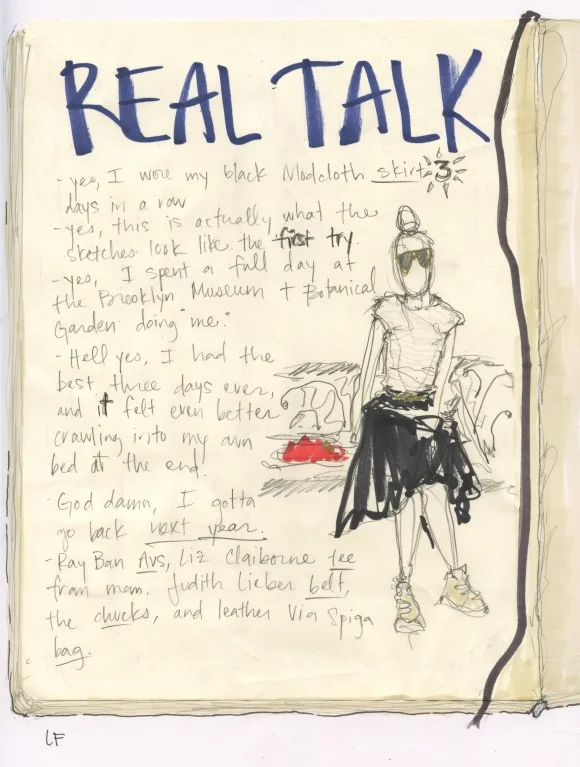 REAL TALK
- yes, I wore my black Modcloth skirt 3
days in a row
- yes, this is actually what the
sketches look like the first try.
- yes, I spent a full day at
the Brooklyn Museum + Botanical
Garden doing "me."
- Hell yes, I had the
best three days ever,
and it felt even better
crawling into my own
bed at the end.
- God damn, I gotta
go back next year.
- Ray Ban Avs, Liz Claiborne tee
from mom. Judith Lieber belt,
the chucks, and leather Via Spiga
bag.
LF